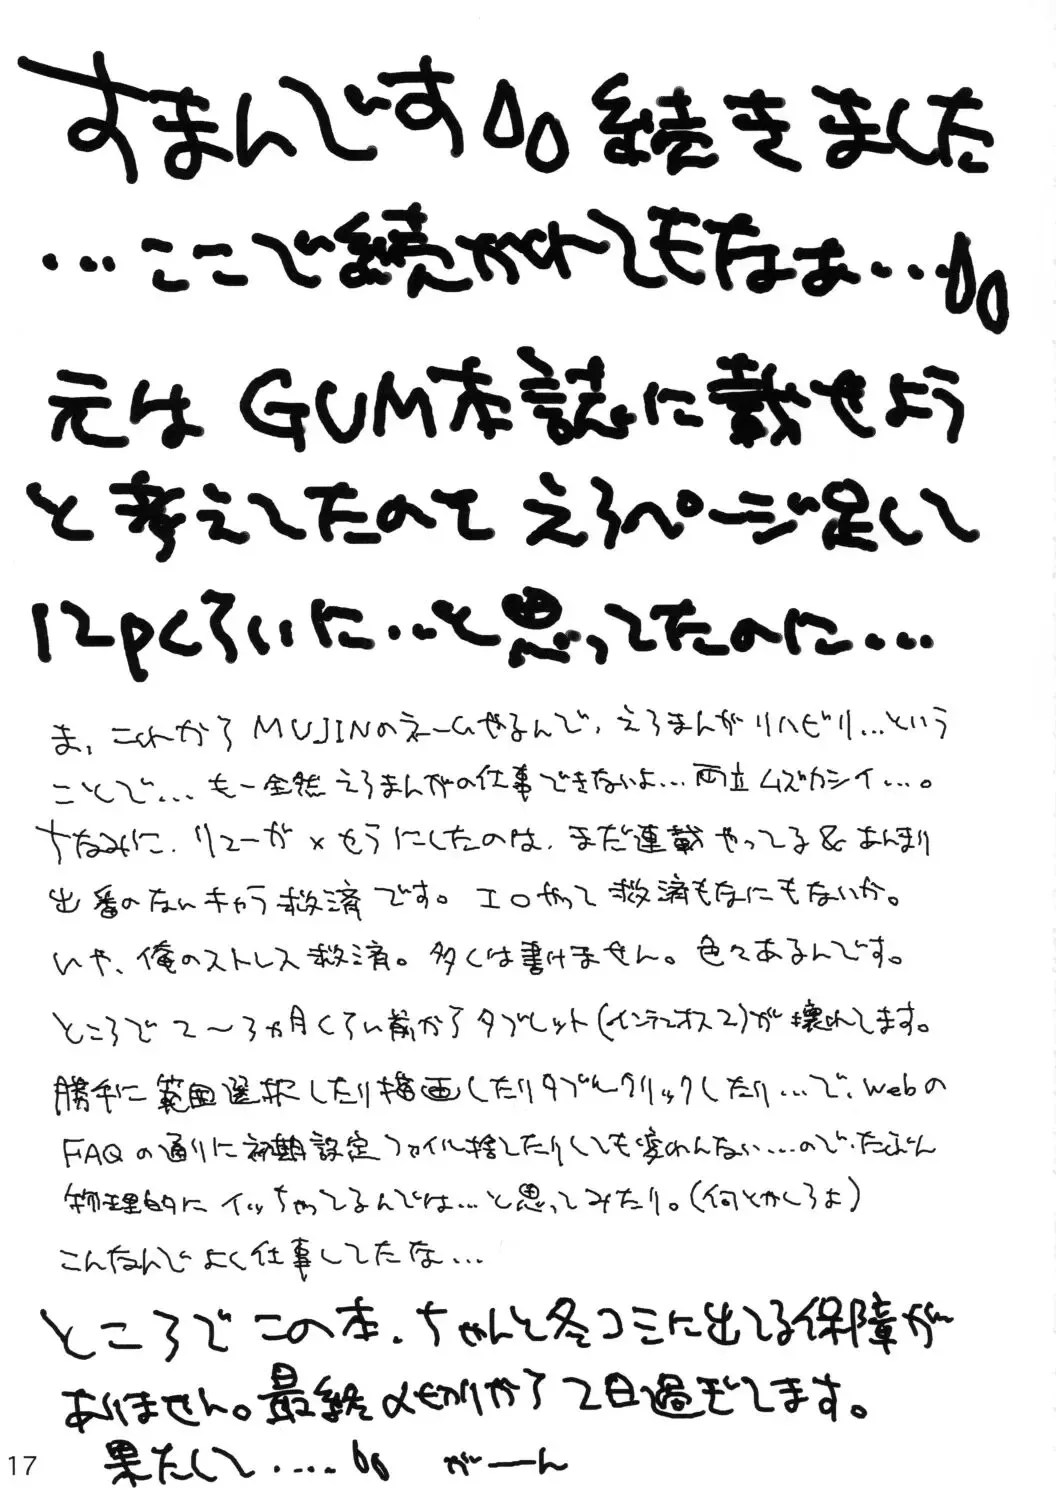 すまんです 続きました
…ここで続かれてもなぁ…
元は GUM本誌に載せよう
と考えてたので えろページ足して
12pくらいに…と思ってたのに…
ま、これから MUJINのネームやるんで、えろまんがリハビリ…という
ことで… も一全然えろまんがの仕事できないよ…両立ムズカシイ…。
ちなみに、リューがxせうにしたのは、まだ連載やってる&あんまり
出番のないキャラ救済です。エロやって救済もなにもないか。
いや、俺のストレス救済。多くは書けません。色々あるんです。
ところで2〜3ヵ月くらい前からタブレット(インテュオス2)が壊れてます。
勝手に範囲選択したり描画したりダブルクリックしたり…で、webの
FAQの通りに初期設定ファイル捨てたりしても変わんない…ので、たぶん
物理的にイッちゃってるんでは…と思ってみたり。(何とかしろよ)
こんなんでよく仕事してたな…
ところで この本、ちゃんと冬コミに出てる保障が
ありません。最終〆切りから2日過ぎてます。
果たして…… がーーん
17